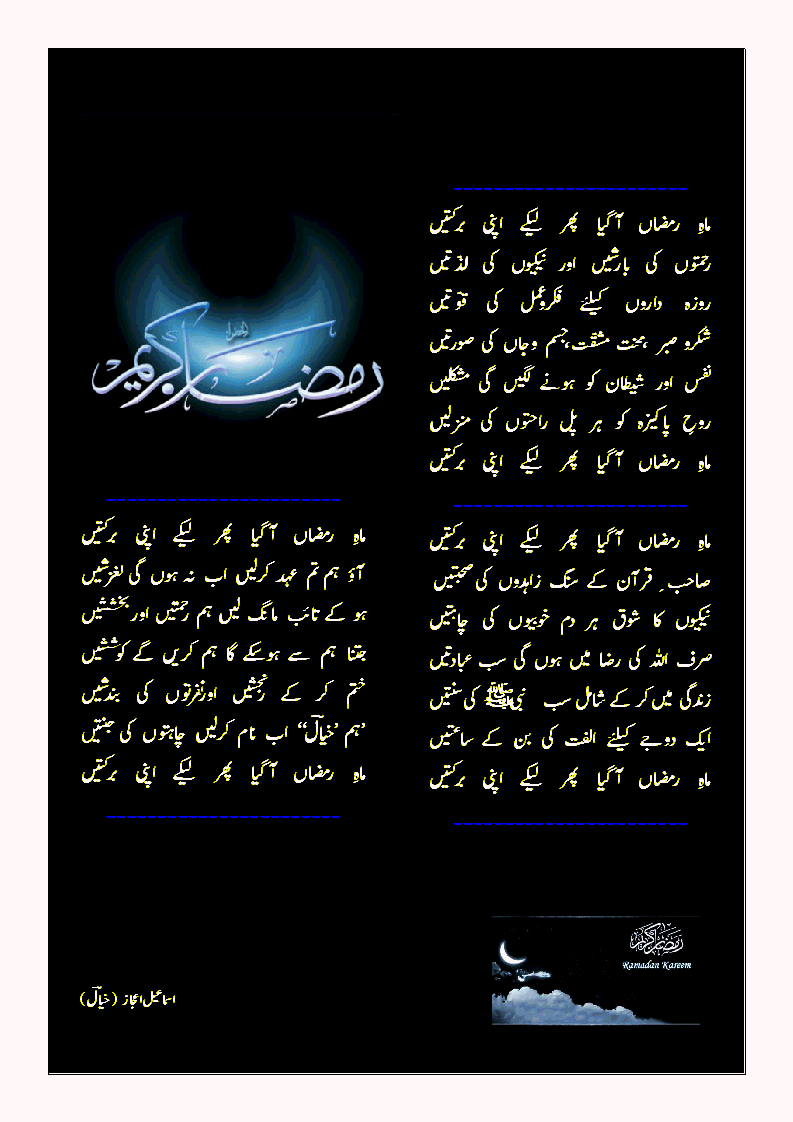 ماہِ رمضاں آگیا پھر لیکے اپنی برکتیں
رحمتوں کی بارشیں اور نیکیوں کی لذّتیں
روزہ داروں کیلئے فکروعمل کی قوّتیں
شکرو صبر ،محنت ،مشقت،جسم وجاں کی صورتیں
نفس اور شیطان کو ہونے لگیں گی مشکلیں
روحِ پاکیزہ کو ہر پل راحتوں کی منزلیں
ماہِ رمضاں آگیا پھر لیکے اپنی برکتیں
ماہِ رمضاں آگیا پھر لیکے اپنی برکتیں
صاحبِ قرآن کے سنگ زاہدوں کی صحبتیں
نیکیوں کا شوق ہر دم خوبیوں کی چاہتیں
صرف اللہ کی رضا میں ہوں گی سب عبادتیں
زندگی میں کر کے شامل سب نبی ﷺ کی سنتیں
ایک دوجے کیلئے الفت کی بن کے ساعتیں
ماہِ رمضاں آگیا پھر لیکے اپنی برکتیں
رمضان كريم
ماہِ رمضاں آگیا پھر لیکے اپنی برکتیں
آؤ ہم تم عہد کرلیں اب نہ ہوں گی لغزشیں
ہو کے تائب مانگ لیں ہم رحمتیں اور بخششیں
جتنا ہم سے ہوسکے گا ہم کریں گے کوششیں
ختم کر کے رنجشیں اورنفرتوں کی بندشیں
’’ہم ’خیالؔ‘‘ اب نام کرلیں چاہتوں کی جنتیں
ماہِ رمضاں آگیا پھر لیکے اپنی برکتیں
رمضان كريم
Ramadan Kareem
اسماعیل اعجاز (خیالؔ)